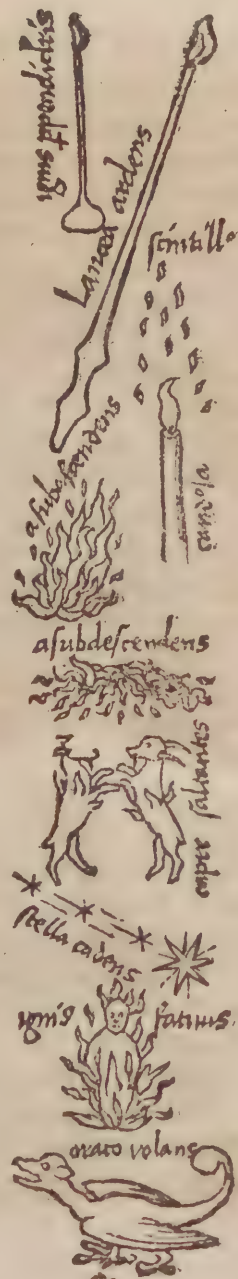 Lancea ardens
scintillæ
candela
asub ascendens
asub descendens
capræ saltantes
stella cadens
ignis fatuus.
draco volans